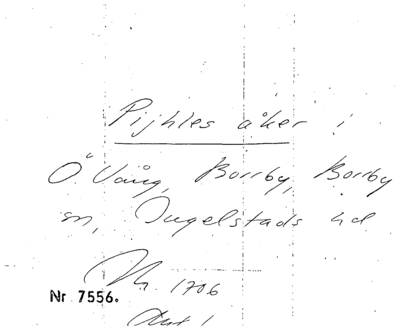 Pijhles åker i
Ö. Vång, Borrby, Borrby
sn, Ingelstads hd
1706
Nr 7556.